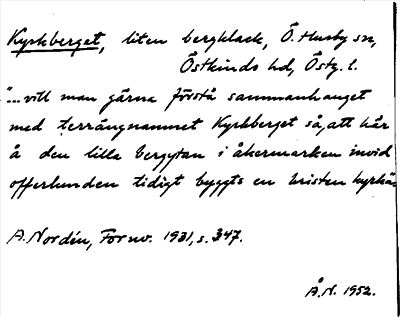 Kyrkberget, liten bergklack, Ö. Husby sn,
Östkinds hd, Östg. l.
"... vill man gärna förstå sammanhanget
med terrängnamnet Kyrkberget så, att här
å den lilla bergytan i åkermarken invid
offerlunden tidigt byggts en kristen kyrka
A. Nordén, Fornv. 1931, s. 347.
Å. N. 1952.